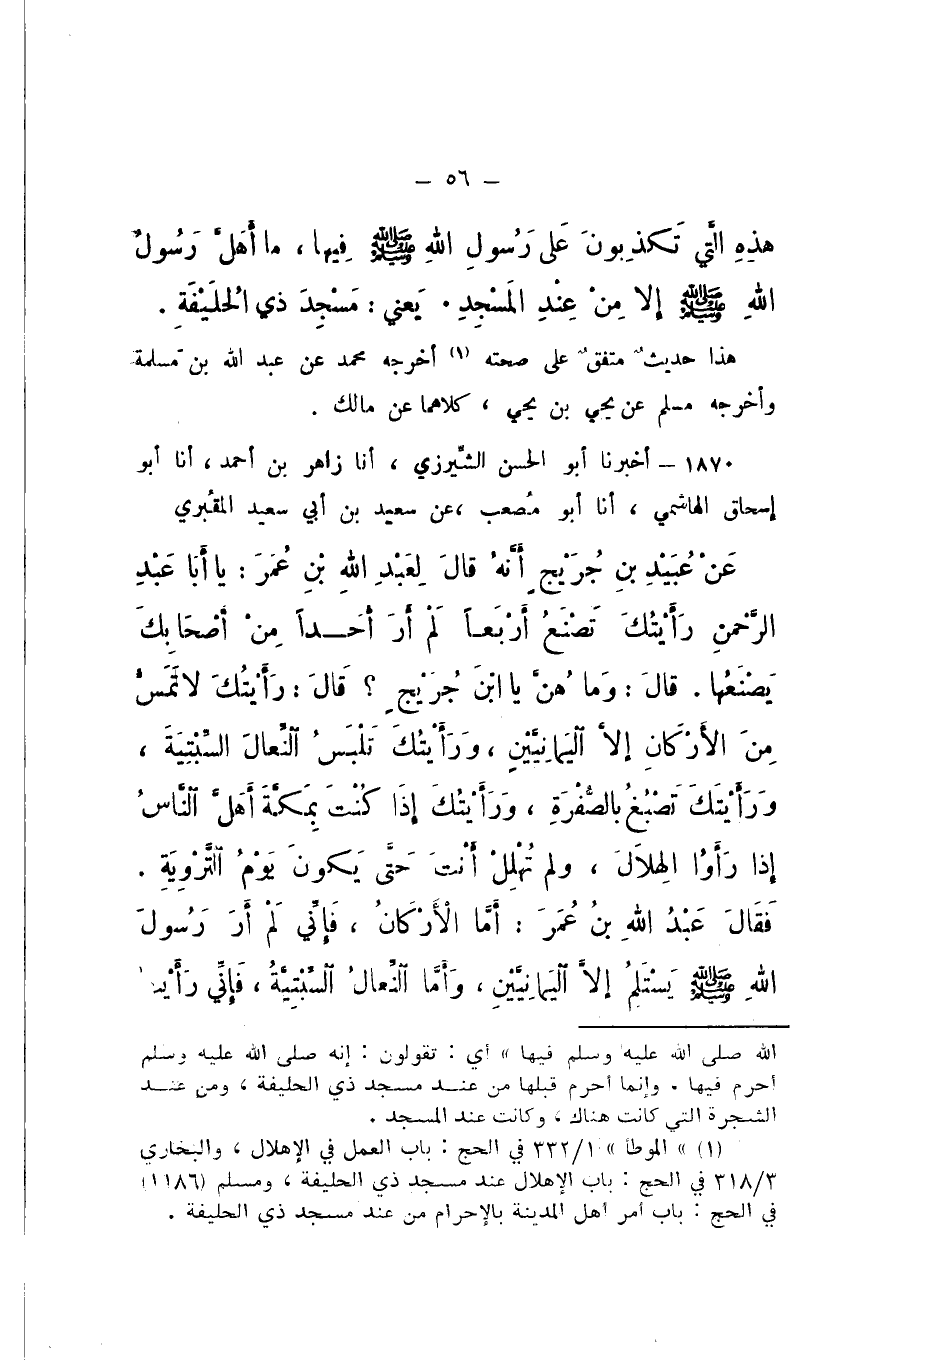 — ٥٦ —
هذِهِ الَّتِي تَكذِبونَ عَلى رَسُولِ اللهِ ﷺ فِيها ، ما أَهَلَّ رَسُولُ
اللهِ ﷺ إلا مِنْ عِنْدِ المَسْجِدِ . يَعني : مَسْجِدَ ذي الحُلَيْفَةِ .
هذا حديثٌ متفقٌ على صحته (١) أخرجه محمد عن عبد الله بن مَسلمة
وأخرجه مسلم عن يحيي بن يحيي ، كلاهما عن مالك .
١٨٧٠ — أخبرنا أبو الحسن الشِّيرزي ، أنا زاهر بن أحمد ، أنا أبو
إسحاق الهاشمي ، أنا أبو مُصعب ، عن سعيد بن أبي سعيد المقبُري
عَنْ عُبَيْدِ بنِ جُرَيْجٍ أَنَّهُ قالَ لِعَبْدِ اللهِ بْنِ عُمَرَ : يا أَبَا عَبْدِ
الرَّحْمنِ رَأَيْتُكَ تَصْنَعُ أَرْبَعاً لَمْ أَرَ أَحَداً مِنْ أَصْحَابِكَ
يَصْنَعُها . قالَ : وَما هُنَّ يا ابْنَ جُرَيْجٍ ؟ قَالَ : رَأَيْتُكَ لا تَمَسُّ
مِنَ الأَرْكانِ إلاَّ اليَمانِيَّيْنِ ، وَرَأَيْتُكَ تَلْبَسُ النِّعالَ السِّبْتِيَةَ ،
وَرَأَيْتَكَ تَصْبُغُ بالصُّفْرَةِ ، وَرَأَيْتُكَ إذَا كُنْتَ بِمَكَّةَ أَهَلَّ النَّاسُ
إذا رَأَوُا الهِلَالَ ، ولم تُهْلِلْ أَنْتَ حَتَّى يَكونَ يَوْمُ التَّرْوِيَةِ .
فَقَالَ عَبْدُ اللهِ بنُ عُمَرَ : أَمَّا الأَرْكَانُ ، فَإنِّي لَمْ أَرَ رَسُولَ
اللهِ ﷺ يَسْتَلِمُ إلاَّ اليَمانِيَّيْنِ ، وَأَمَّا النِّعالُ السِّبْتِيَّةُ ، فَإنِّي رَأَيْتُ
الله صلى الله عليه وسلم فيها » أي : تقولون : إنه صلى الله عليه وسلم
أحرم فيها . وإنما أحرم قبلها من عند مسجد ذي الحليفة ، ومن عند
الشجرة التي كانت هناك ، وكانت عند المسجد .
(١) « الموطأ » ٣٣٢/١ في الحج : باب العمل في الإهلال ، والبخاري
٣١٨/٣ في الحج : باب الإهلال عند مسجد ذي الحليفة ، ومسلم (١١٨٦)
في الحج : باب أمر أهل المدينة بالإحرام من عند مسجد ذي الحليفة .